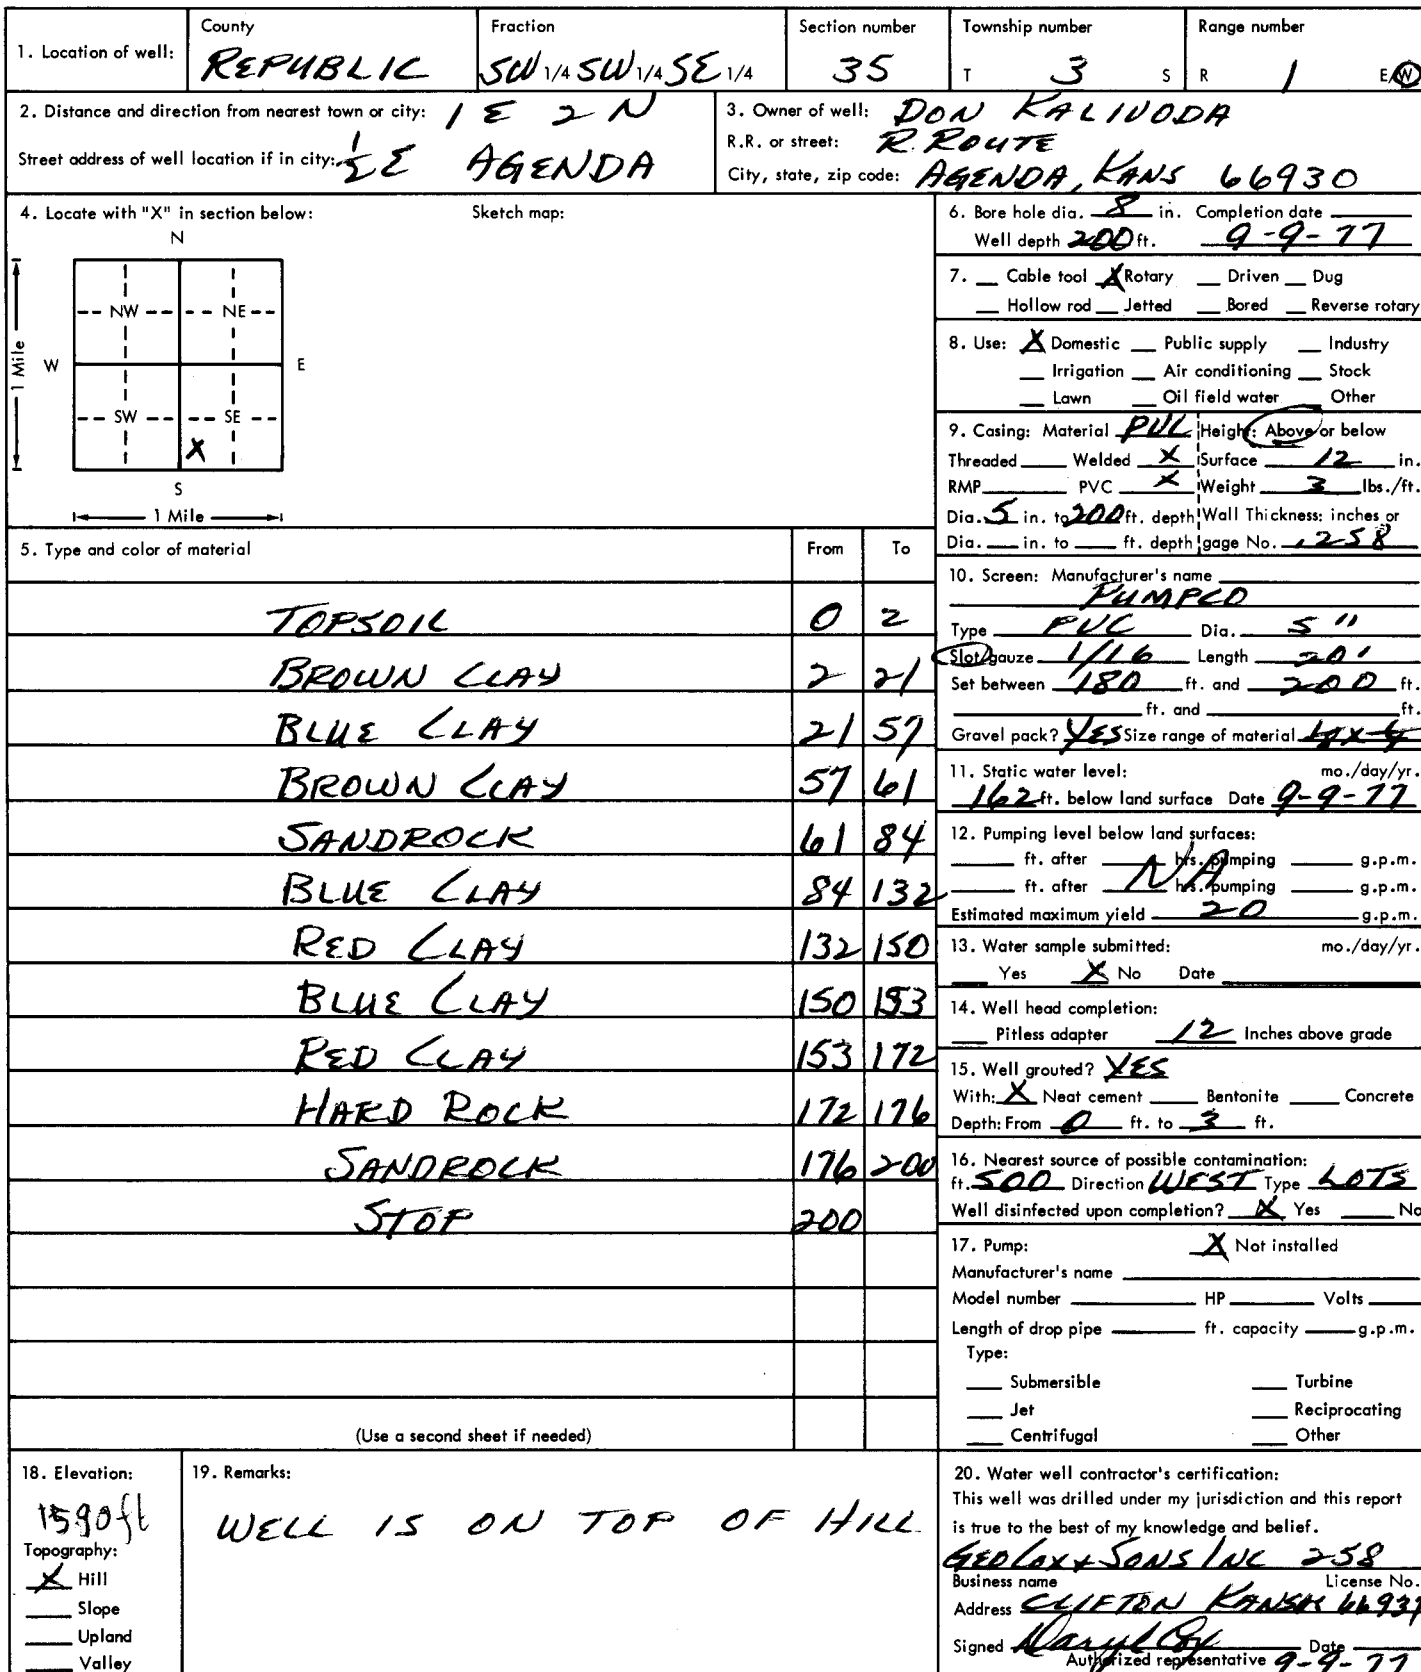 1. Location of well:
County
REPUBLIC
Fraction
SW 1/4 SW 1/4 SE 1/4
Section number
35
Township number
T 3 S
Range number
R 1 E/W
2. Distance and direction from nearest town or city: 1 E 2 N
Street address of well location if in city: 1/2 E AGENDA
3. Owner of well: DON KALIVODA
R.R. or street: R. ROUTE
City, state, zip code: AGENDA, KANS 66930
4. Locate with "X" in section below:
Sketch map:
N
NW NE
W E
1 Mile
SW SE
X
S
1 Mile
5. Type and color of material From To
TOPSOIL 0 2
BROWN CLAY 2 21
BLUE CLAY 21 57
BROWN CLAY 57 61
SANDROCK 61 84
BLUE CLAY 84 132
RED CLAY 132 150
BLUE CLAY 150 153
RED CLAY 153 172
HARD ROCK 172 176
SANDROCK 176 200
STOP 200
(Use a second sheet if needed)
6. Bore hole dia. 8 in. Completion date
Well depth 200 ft. 9-9-77
7. __ Cable tool X Rotary __ Driven __ Dug
__ Hollow rod __ Jetted __ Bored __ Reverse rotary
8. Use: X Domestic __ Public supply __ Industry
__ Irrigation __ Air conditioning __ Stock
__ Lawn __ Oil field water __ Other
9. Casing: Material PVC Height: Above or below
Threaded ____ Welded X Surface 12 in.
RMP ____ PVC X Weight 3 lbs./ft.
Dia. 5 in. to 200 ft. depth Wall Thickness: inches or
Dia. __ in. to __ ft. depth gage No. .258
10. Screen: Manufacturer's name
PUMPCO
Type PVC Dia. 5"
Slot/gauze 1/16 Length 20'
Set between 180 ft. and 200 ft.
____ ft. and ____ ft.
Gravel pack? YES Size range of material
11. Static water level: mo./day/yr.
162 ft. below land surface Date 9-9-77
12. Pumping level below land surfaces:
____ ft. after ____ hrs. pumping ____ g.p.m.
NA
____ ft. after ____ hrs. pumping ____ g.p.m.
Estimated maximum yield 20 g.p.m.
13. Water sample submitted: mo./day/yr.
__ Yes X No Date ____
14. Well head completion:
__ Pitless adapter 12 Inches above grade
15. Well grouted? YES
With: X Neat cement ____ Bentonite ____ Concrete
Depth: From 0 ft. to 3 ft.
16. Nearest source of possible contamination:
ft. 500 Direction WEST Type LOTS
Well disinfected upon completion? X Yes ____ No
17. Pump: X Not installed
Manufacturer's name ____
Model number ____ HP ____ Volts ____
Length of drop pipe ____ ft. capacity ____ g.p.m.
Type:
__ Submersible __ Turbine
__ Jet __ Reciprocating
__ Centrifugal __ Other
18. Elevation:
1590ft
Topography:
X Hill
__ Slope
__ Upland
__ Valley
19. Remarks:
WELL IS ON TOP OF HILL
20. Water well contractor's certification:
This well was drilled under my jurisdiction and this report
is true to the best of my knowledge and belief.
GEO COX & SONS INC 258
Business name License No.
Address CLIFTON KANSAS 66937
Signed Daryl Cox Date
Authorized representative 9-9-77